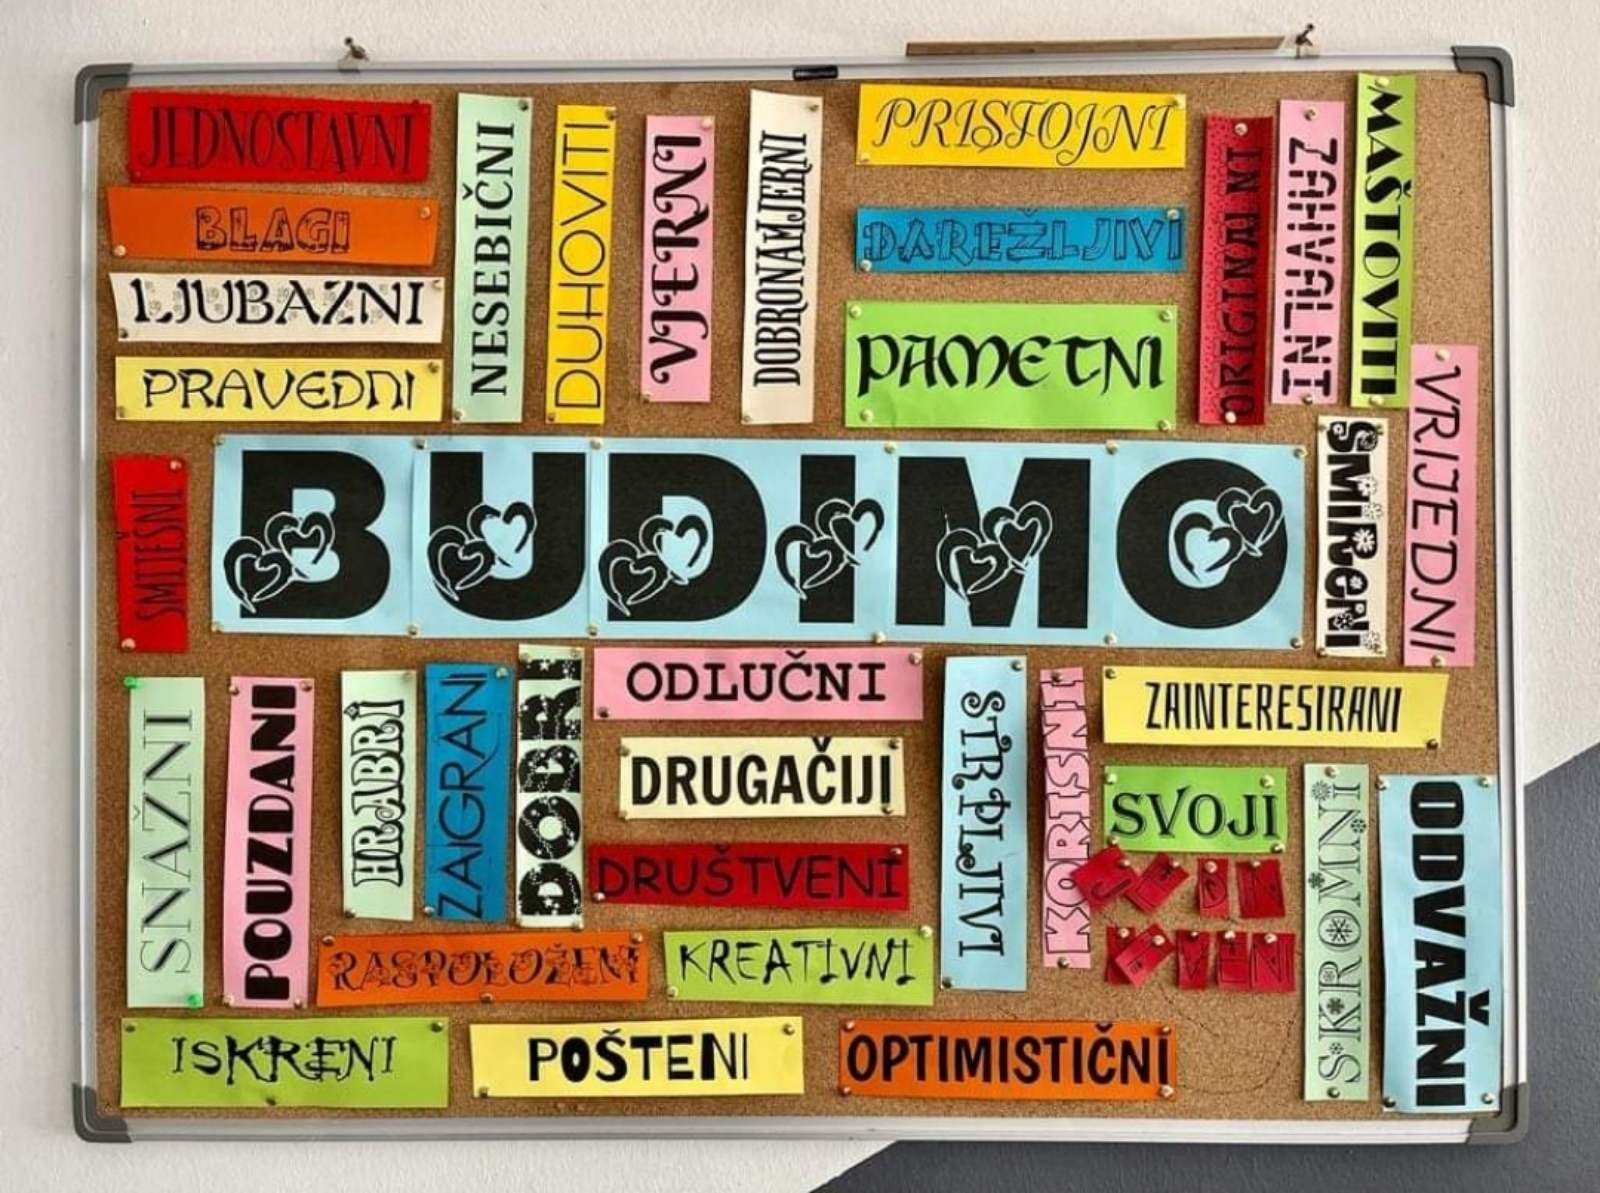 JEDNOSTAVNI
BLAGI
LJUBAZNI
PRAVEDNI
NESEBIČNI
DUHOVITI
VJERNI
DOBRONAMJERNI
PRISTOJNI
DAREŽLJIVI
PAMETNI
ORIGINALNI
ZAHVALNI
MAŠTOVITI
SMIJEŠNI
BUDIMO
SMIRENI
VRIJEDNI
SNAŽNI
POUZDANI
HRABRI
ZAIGRANI
DOBRI
ODLUČNI
DRUGAČIJI
DRUŠTVENI
RASPOLOŽENI
KREATIVNI
STRPLJIVI
KORISNI
ZAINTERESIRANI
SVOJI
SKROMNI
ODVAŽNI
ISKRENI
POŠTENI
OPTIMISTIČNI